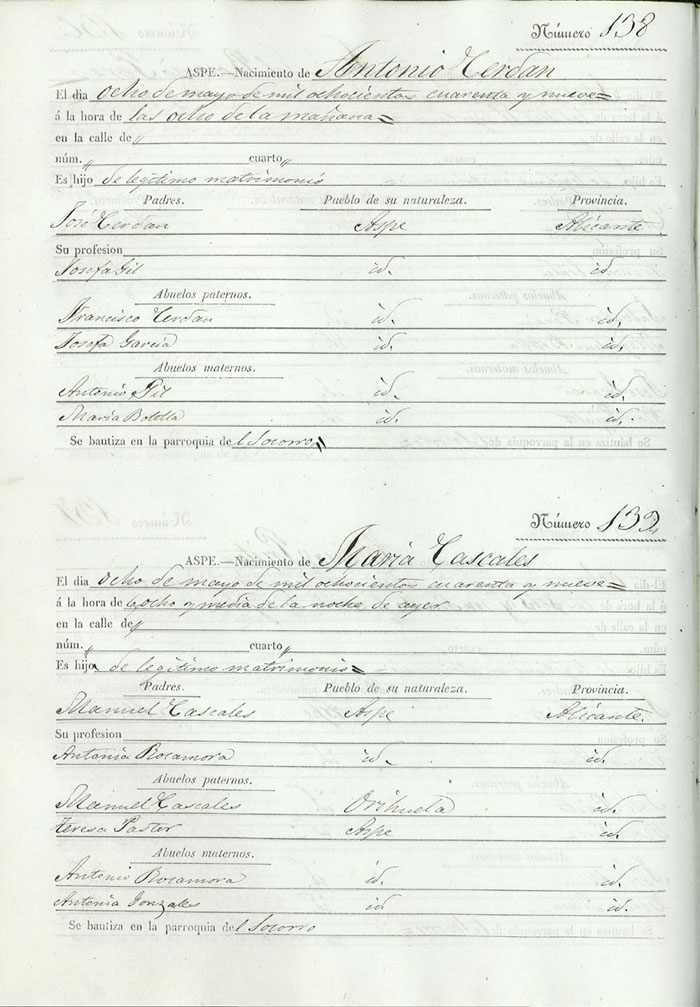 Número 138
ASPE.—Nacimiento de Antonio Cerdan
El dia ocho de mayo de mil ochocientos cuarenta y nueve=
á la hora de las ocho de la mañana=
en la calle de "
núm. " cuarto "
Es hijo de legitimo matrimonio
Padres. Pueblo de su naturaleza. Provincia.
José Cerdan Aspe Alicante
Su profesion
Josefa Gil id. id.
Abuelos paternos.
Francisco Cerdan id. id.
Josefa Garcia id. id.
Abuelos maternos.
Antonio Gil id. id.
Maria Botella id. id.
Se bautiza en la parroquia del Socorro=
Número 139
ASPE.—Nacimiento de Maria Cascales
El dia ocho de mayo de mil ochocientos cuarenta y nueve=
á la hora de ocho y media de la noche de ayer
en la calle de "
núm. " cuarto "
Es hija de legitimo matrimonio=
Padres. Pueblo de su naturaleza. Provincia.
Manuel Cascales Aspe Alicante
Su profesion
Antonia Rocamora id. id.
Abuelos paternos.
Manuel Cascales Orihuela id.
Teresa Pastor Aspe id.
Abuelos maternos.
Antonio Rocamora id. id.
Antonia Gonzales id. id.
Se bautiza en la parroquia del Socorro